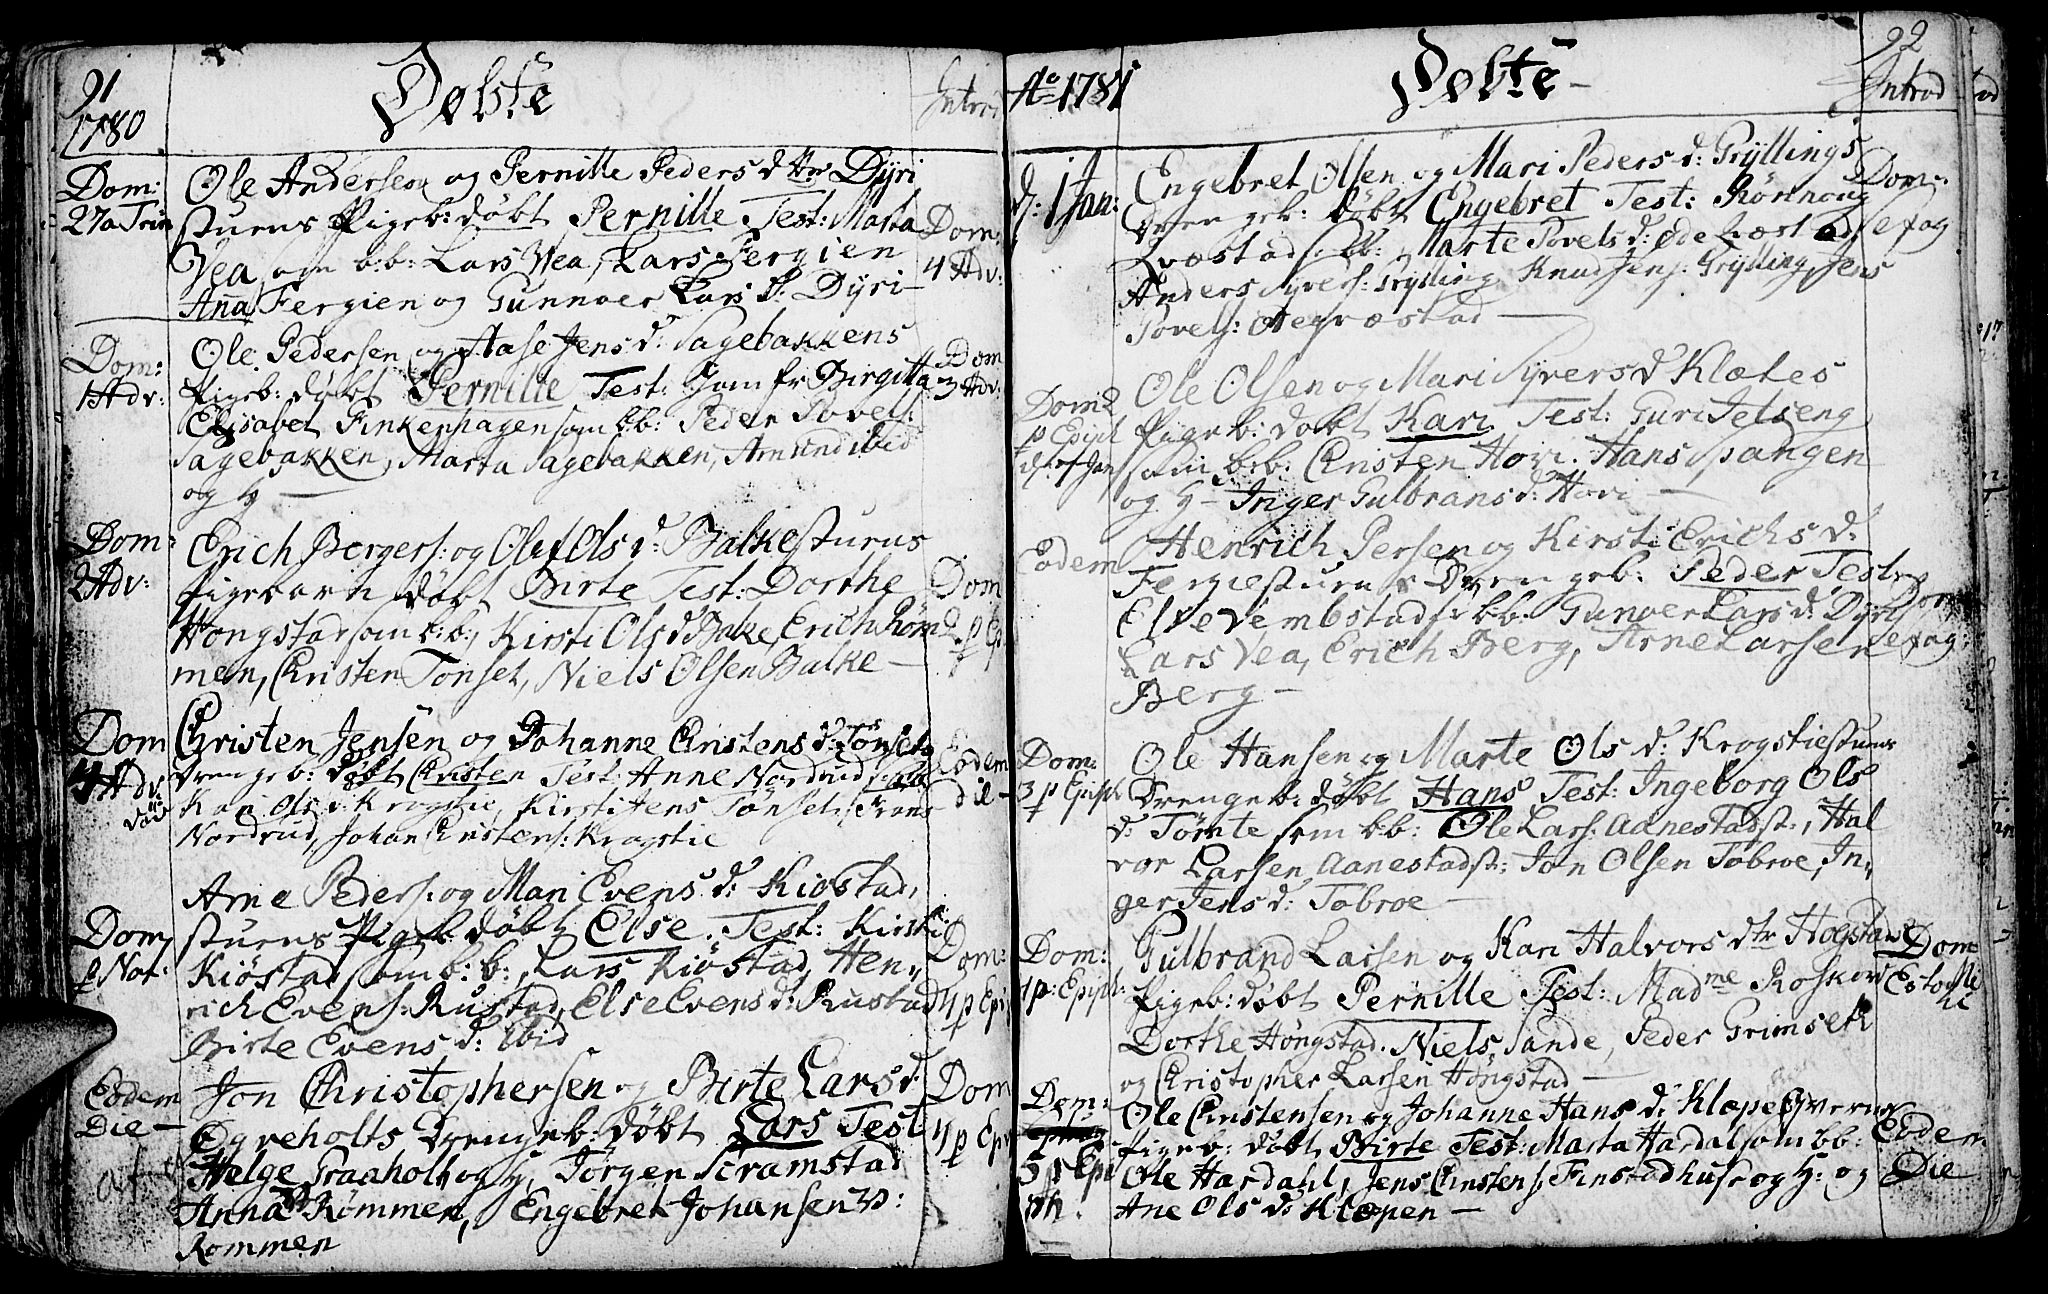 91
1780
Døbte
Introd
Dom:
27a Trin
Ole Andersen og Pernille Peders dtr Dyri
stuens Pigeb: døbt Pernille Test: Marta
Vea, om b:b: Lars Vea, Lars Fergien
Ana Fergien og Gunnoer Lars d: Dyri
Dom:
4 Adv:
Dom:
1 Adv:
Ole Pedersen og Aase Jens d: Sagebakkens
Pigeb: døbt Pernille Test: Jomfr Birgitta
Elisabet Finkenhagen som bb: Peder Povels:
Sagebakken, Marta Sagebakken, Amund ibid
og H —
Dom
3 Adv:
Dom:
2 Adv:
Erich Bergers: og Oles d: Balkestuens
Pigebarn døbt Birte Test: Dorthe
Høngstad som b:b: Kirsti Ols d Balke Erich Røm
men, Christen Tønset, Niels Olsen Balke —
Dom
2 p Ep
Dom
4 Adv:
Christen Jensen og Johanne Christens d: Tønset
Drengeb: døbt Christen Test: Anne Nordrud som
Kari Ols d: Krogstie, Kirsti Jens Tønset,
Nordrud, Johan Christens: Krogstie
Eodem
die —
Dom
p Nat:
Arne Peders: og Mari Evens d: Kiøstad,
stuens Pigeb døbt Else. Test: Kirsti
Kiøstad som b:b: Lars Kiøstad, Hen„
rich Evens: Rustad, Else Evens d: Rustad
Birte Evens d: ibid
Dom:
4 p Epi
Eodem
Die —
Jon Christophersen og Birte Lars d:
Øgreholts Drengeb: døbt Lars Test
Helge Graaholt og H, Jørgen Skramstad
Anna Rømmen, Engebret Johansen
Rommen
Dom
4 p Ep
Ao 1781
Døbte —
92
Introd
d: 1 Jan:
Engebret Olsen og Mari Peders d: Gryllings
Drengeb: døbt Engebret Test: Rønnoug
Qvæstad s: bb: Marte Povels d: ødeqvæstad
Anders Syvers: Grylling Knud Jens: Grylling, Jens
Povels: Aegræstad —
Dom:
efag
Dom 2
p Epiph
d: 7 Jan
Ole Olsen og Mari Syvers d Klætes
Pigeb: døbt Kari Test: Guri Jetseng
som b:b: Christen Hovi. Hans Spangen
og H — Inger Gulbrans d: Hovi —
Eodem
Henrich Persen og Kirsti Erichs d:
Fergiestuens Drengeb: Peder Test
Else Dembstad s: bb: Gunvor Lars d: Dyri
Lars Vea, Erich Berg, Arne Larsen
Berg —
Dom
efag:
Dom:
3 p Epiph
Ole Hansen og Marte Ols d: Krogstiestuens
Drengeb: døbt Hans Test: Ingeborg Ols
d: Tømte som bb: Ole Lars: Aanestadst:, Hal
vor Larsen Aanestadst: Jon Olsen Tobroe, In„
ger Jens d: Tobroe —
Dom:
4 p: Epiph:
Gulbrand Larsen og Kari Halvors dtr Høgstad
Pigeb: døbt Pernille Test: Madme Roskow
Dorthe Høngstad. Niels Sande, Peder Grimset
og Christopher Larsen Høngstad —
Dom
Estomi
hi
Dom:
5 p Epi
ph.
Ole Christensen og Johanne Hans d: Klæpe Qverns
Pigeb: døbt Birte Test: Marta Hardal som bb:
Ole Hardahl, Jens Christens: Finstadhuse og H: og
Ane Ols d: Klæpen —
Eodem
Die